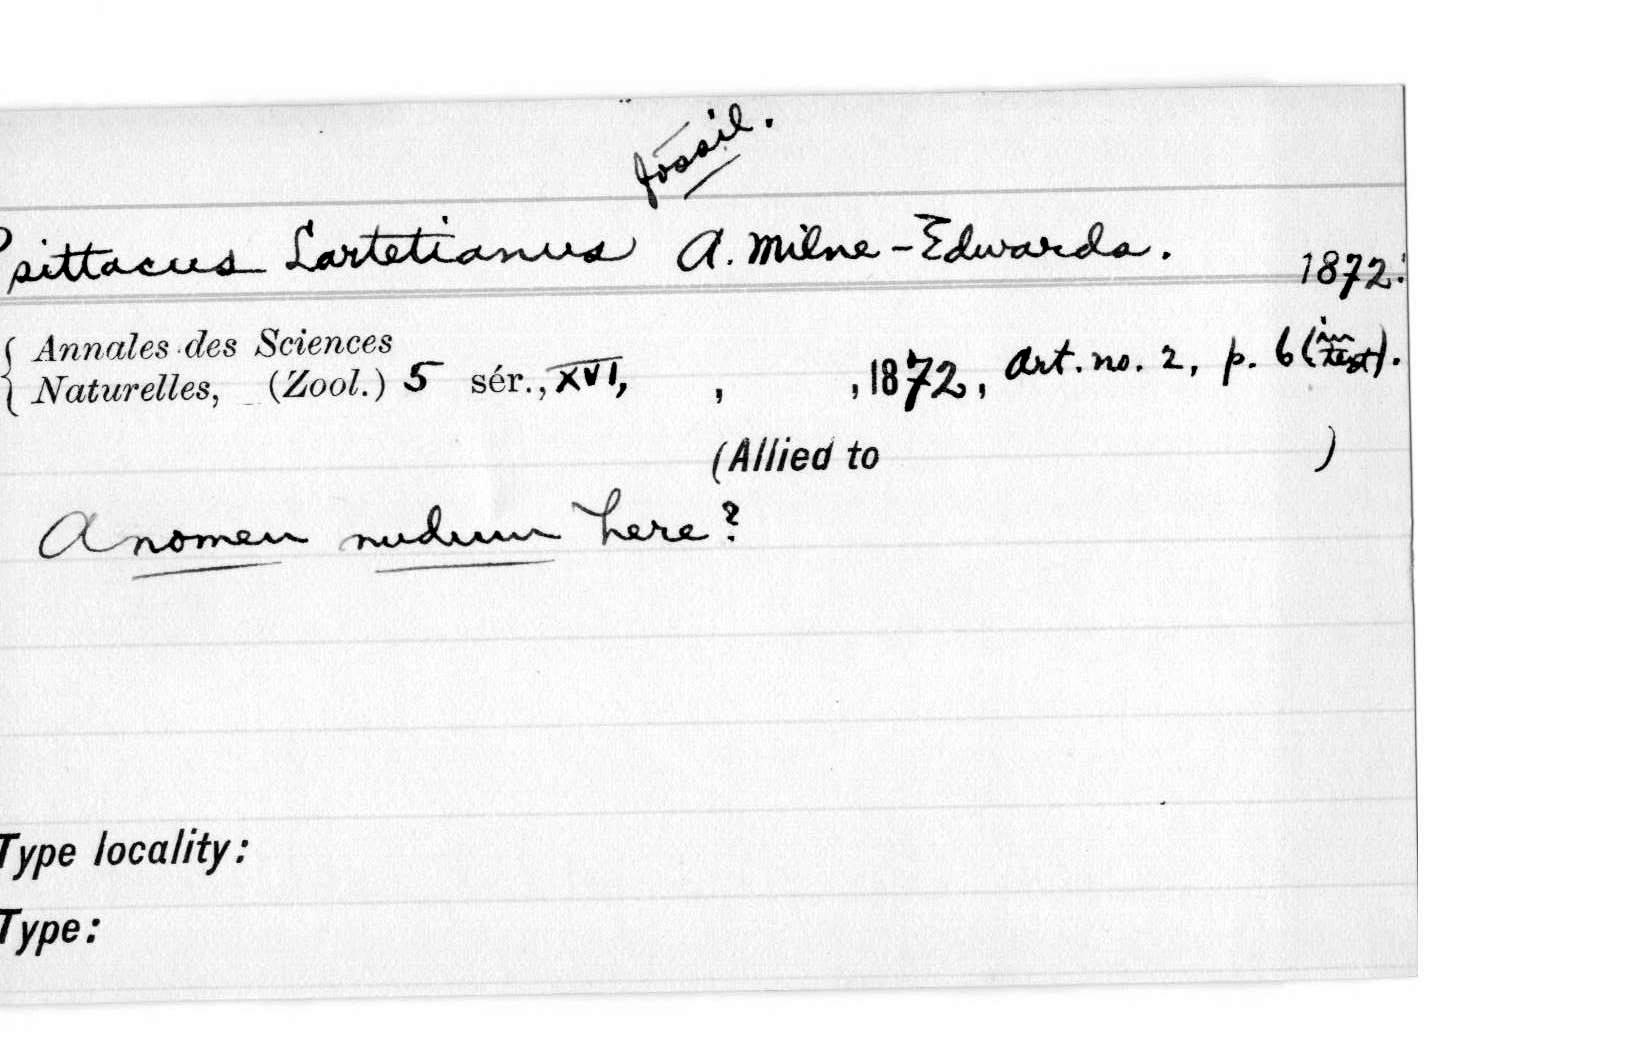 fossil.
Psittacus Lartetianus A. Milne-Edwards. 1872.
Annales des Sciences
Naturelles, (Zool.) 5 sér., XVI, , , 1872, art. no. 2, p. 6 (in text).
(Allied to )
A nomen nudum here?
Type locality:
Type: